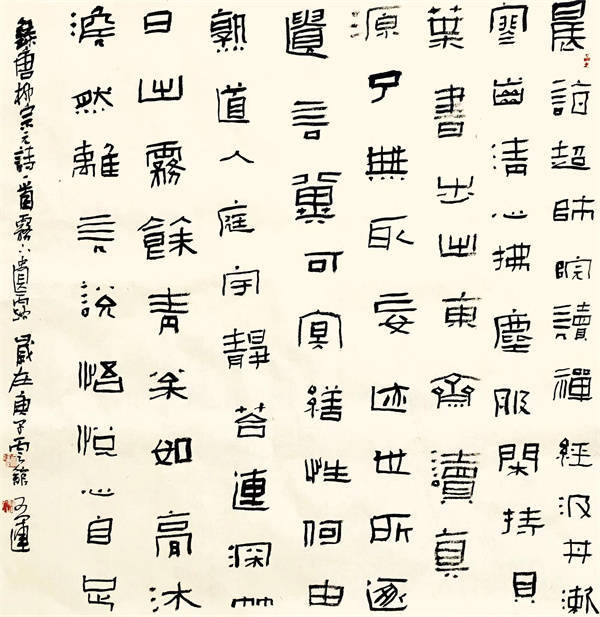 晨詣超師院讀禪經汲井漱
寒齒清心拂塵服閑持貝
葉書步出東齋讀真
源了無取妄迹世所逐
遺言冀可冥繕性何由
熟道人庭宇靜苔連深竹
日出霧餘青松如膏沐
澹然離言說悟悅心自足
錄唐柳宗元詩一首霧下遺露 歲在庚子雲館